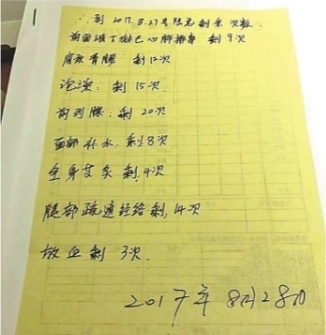 到2017.8.27号陆元剩余次数
前面项丁淋巴心肺排毒 剩9次
肩颈背腰 剩12次
泡澡：剩15次
前列腺：剩20次
面部补水，剩8次
全身艾灸剩，4次
腿部疏通经络剩，14次
放血剩 3次.
2017年8月28日